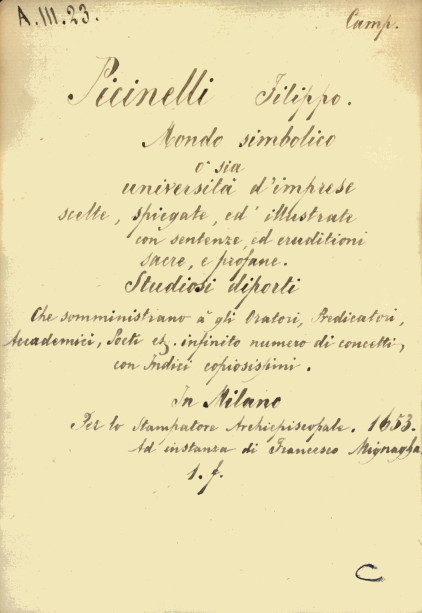 A.III.23.
Camp.
Picinelli Filippo.
Mondo simbolico
o' sia
università d'imprese
scelte, spiegate, ed' illustrate
con sentenze, ed eruditioni
sacre, e profane.
Studiosi diporti
Che somministrano à gli Oratori, Predicatori,
Accademici, Poeti etz. infinito numero di concetti,
con Indici copiosissimi.
In Milano
Per lo Stampatore Archiepiscopale. 1653.
Ad' instanza di Francesco Mignagha.
1. f.
C